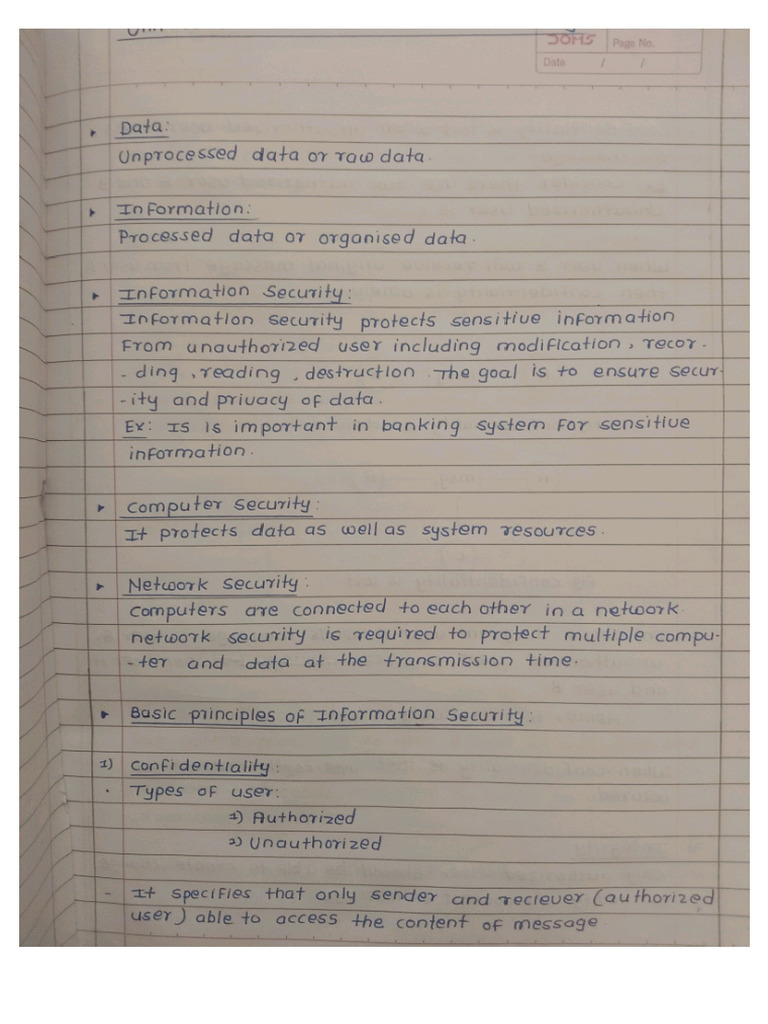 JOMS Page No.
Date / /
Data:
Unprocessed data or raw data.
Information:
Processed data or organised data.
Information Security:
Information security protects sensitive information
From unauthorized user including modification, recor-
-ding, reading, destruction. The goal is to ensure secur-
-ity and privacy of data.
Ex: IS is important in banking system For sensitive
information.
Computer Security:
It protects data as well as system resources.
Network Security:
computers are connected to each other in a network.
network security is required to protect multiple compu-
-ter and data at the transmission time.
Basic principles of Information Security:
1) Confidentiality:
· Types of user:
1) Authorized
2) Unauthorized
- It specifies that only sender and reciever (authorized
user) able to access the content of message